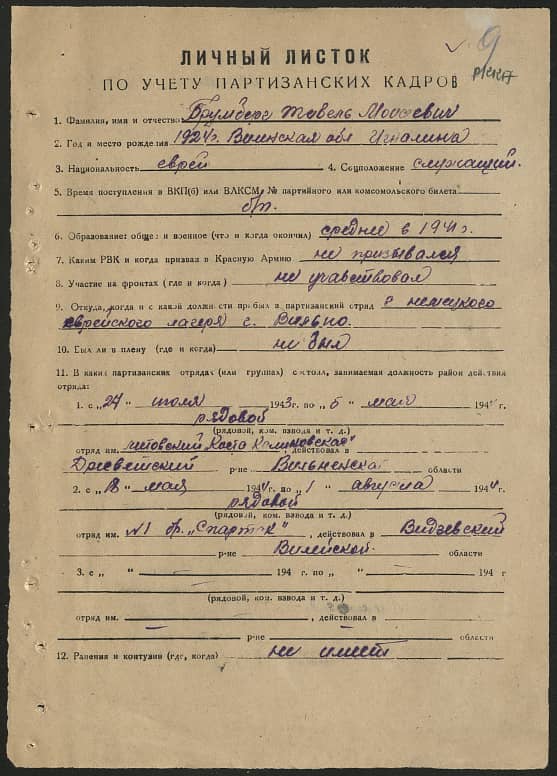 9
РККА
ЛИЧНЫЙ ЛИСТОК
ПО УЧЕТУ ПАРТИЗАНСКИХ КАДРОВ
1. Фамилия, имя и отчество Моисеевич
2. Год и место рождения 1924г. обл Игналина
3. Национальность еврей 4. Соцположение служащий.
5. Время поступления в ВКП(б) или ВЛКСМ, № партийного или комсомольского билета
б/п.
6. Образование: общее и военное (что и когда окончил) среднее в 1941 г.
7. Каким РВК и когда призван в Красную Армию не призывался
8. Участие на фронтах (где и когда) не участвовал
9. Откуда, когда и с какой должности прибыл в партизанский отряд с немецкого
еврейского лагеря г. Вильно.
10. Был ли в плену (где и когда) не был
11. В каких партизанских отрядах (или группах) состоял, занимаемая должность район действия
отряда:
1. с „24" июля 1943 г. по „5 " май 194 г.
рядовой
(рядовой, ком. взвода и т. д.)
отряд им. Литовский Коста Калиновская", действовал в
р-не области
2. с „18 " мая 1944 г. по „1 " августа 1944 г.
рядовой
(рядовой, ком. взвода и т. д.)
отряд им. №1 бр. „Спартак", действовал в Видзевский
р-не Вилейской области
3. с „ " 194 г. по „ " 194 г
(рядовой, ком. взвода и т. д.)
отряд им. , действовал в
р-не области
12. Ранения и контузии (где, когда) не имеет